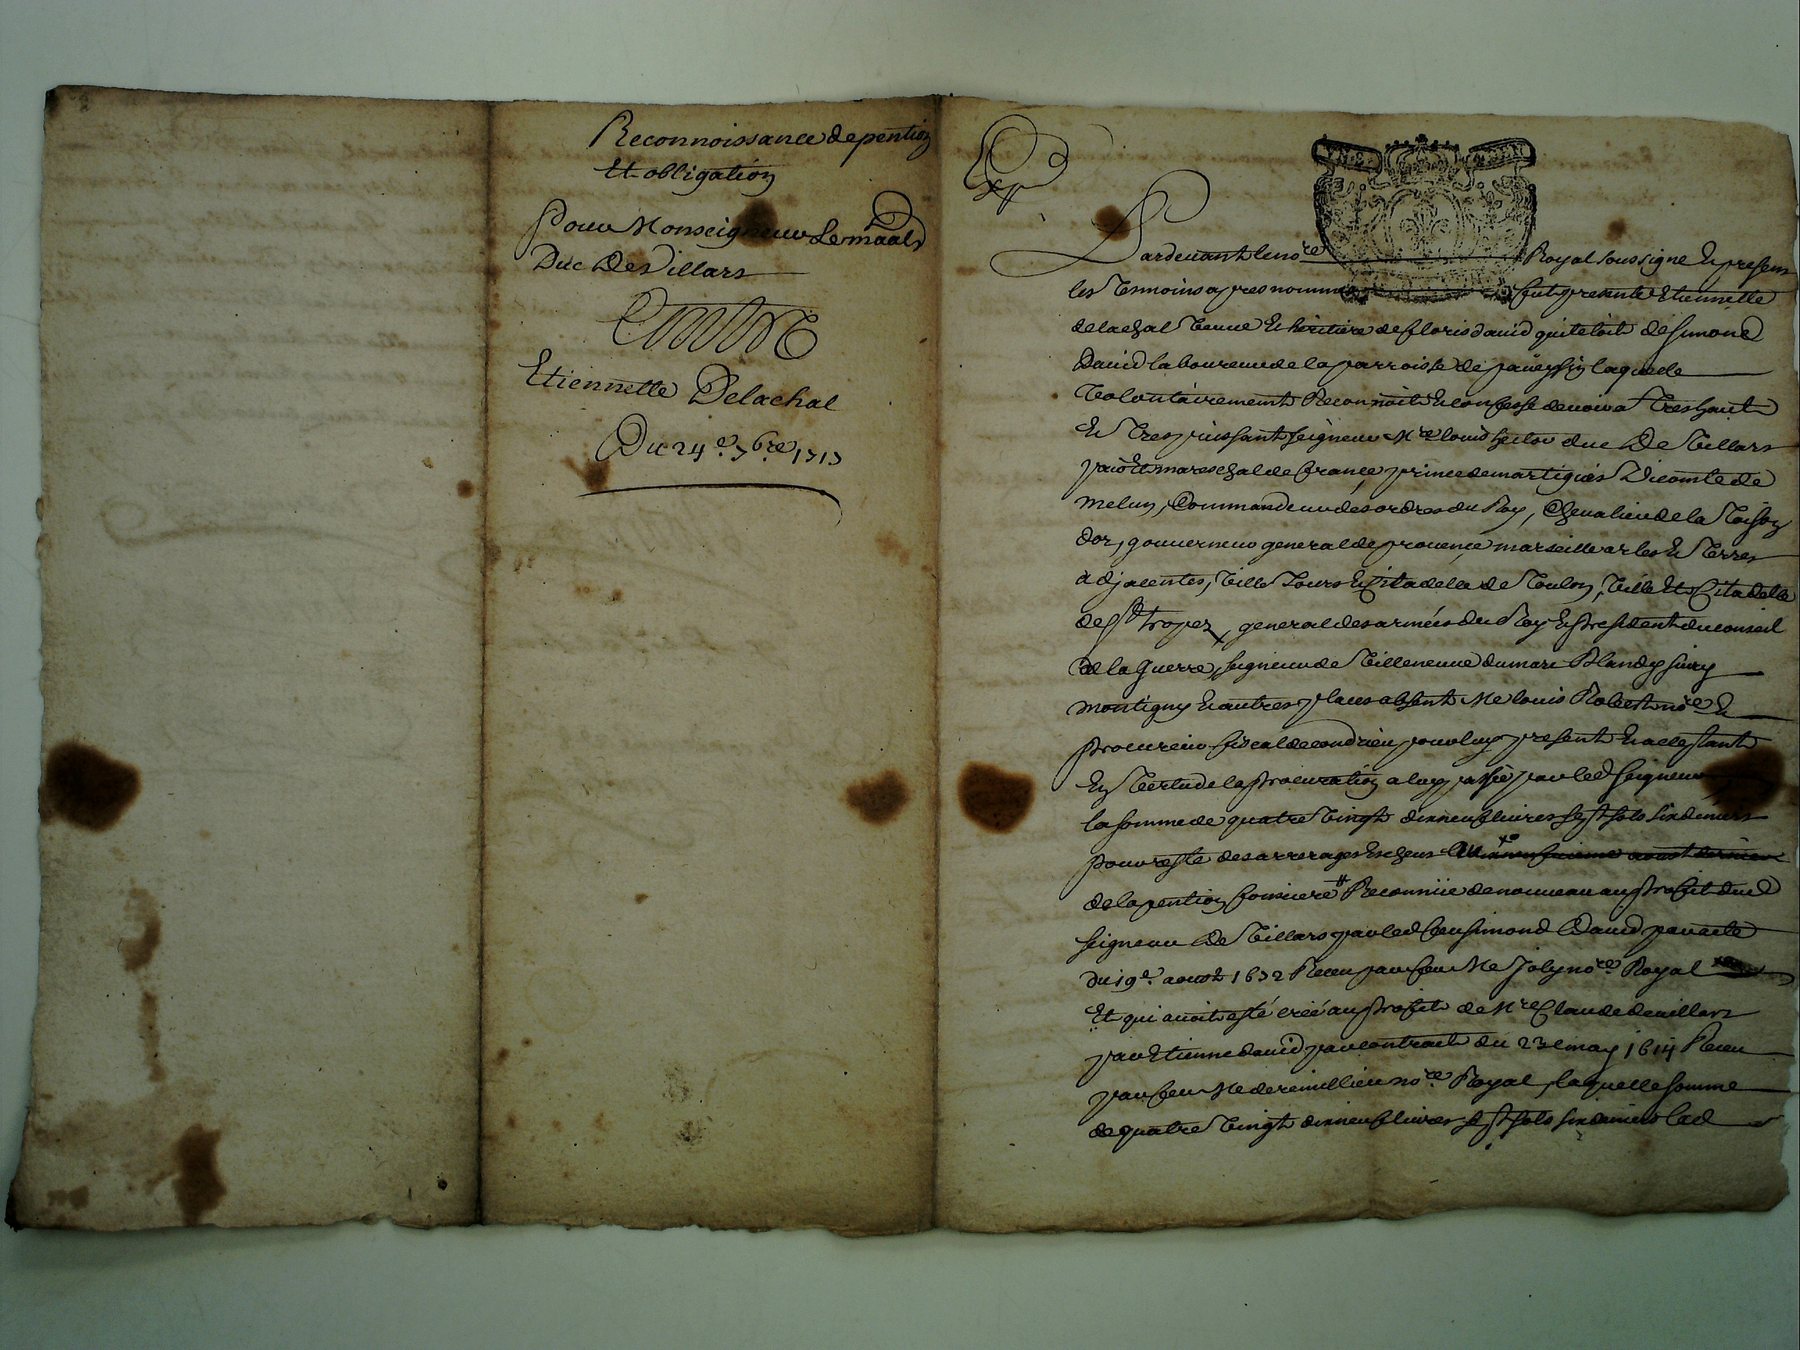 Reconnoissance de pention
Et obligation
Pour Monseigneur Le maal
Duc De Villars
Contre
Etiennette Delachal
Du 24e. 7bre. 1717
Exp
Pardevant le nore Royal soussigne Et presens
les Temoins apres nommes fut presente Etiennette
delachal veuve Et heritiere de floris david quitetoit de simond
David laboureur de la parroisse de laquele
volontairement Reconnoit Et confesse devoir a Tres haut
Et Tres puissant seigneur Mre louis hector duc De Villars
pair Et mareschal de france, prince de martigues Vicomte de
melun, Commandeur des ordres du Roy, Chevalier de la Toison
dor, gouverneur general de provence marseille arles Et Terres
adjacentes, Ville Tours Et Citadelle de Toulon, Ville Et Citadelle
de st tropez, general des armées du Roy Et president du conseil
de la Guerre, seigneur de Villeneuve dumare Blandy
montigny Et autres places absent Me louis Robert nore Et
procureur fiscal de condrieu pour luy present Et aceptant
En Vertu de la procuration a luy passée par led seigneur
la somme de quatre Vingt dixneuf livres sept sols six deniers
pour reste des arrerages Escheus
de la pention fonciere # Reconnüe de nouveau au profit dud
seigneur De Villars par led feu simond David par acte
du 19e. aoust 1672 Receu par feu Me Joly nore Royal
Et qui avoit esté créé au profit de Mre Claude de villars
par Etienne david par contract du 23e may 1614 Receu
par feu Me nore Royal, laquelle somme
de quatre Vingt dixneuf livres sept sols six deniers lad